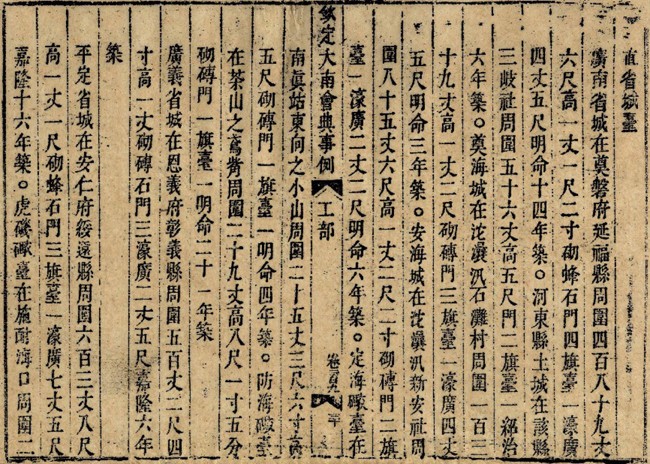 直省城臺
廣南省城在奠磐府延福縣周圍四百八十九丈
六尺高一丈一尺二寸砌蜂石門四旗臺一濠廣
四丈五尺明命十四年築。河東縣土城在該縣
三岐社周圍五十六丈高五尺門二旗臺一紹治
六年築。奠海城在沱㶞汛石灘村周圍一百三
十九丈高一丈二尺砌磚門三旗臺一濠廣四丈
五尺明命三年築。安海城在沱㶞汛新安社周
圍八十五丈六尺高一丈二尺二寸砌磚門二旗
臺一濠廣二丈二尺明命六年築。定海礮臺在
欽定大南會典事例 工部 卷二百九
南眞站東向之小山周圍二十五丈三尺六寸高
五尺砌磚門一旗臺一明命四年築。防海礮臺
在茶山之嵩觜周圍二十九丈高八尺一寸五分
砌磚門一旗臺一明命二十一年築
廣義省城在思義府彰義縣周圍五百丈二尺四
寸高一丈砌磚石門三濠廣二丈五尺嘉隆六年
築
平定省城在安仁府綏遠縣周圍六百三丈八尺
高一丈一尺砌蜂石門三旗臺一濠廣七丈五尺
嘉隆十六年築。虎磯礮臺在施耐海口周圍二